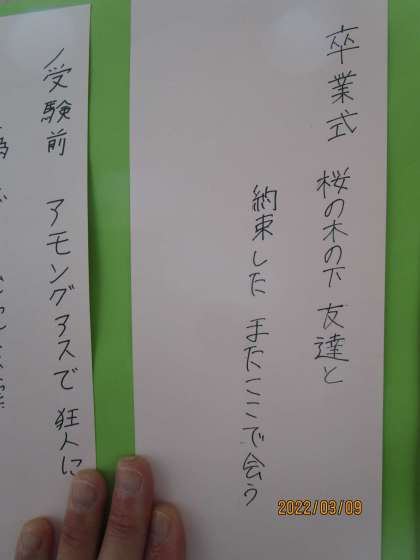 卒業式 桜の木の下 友達と
約束した またここで会う
受験前 アモングアスで 狂人に
2022/03/09